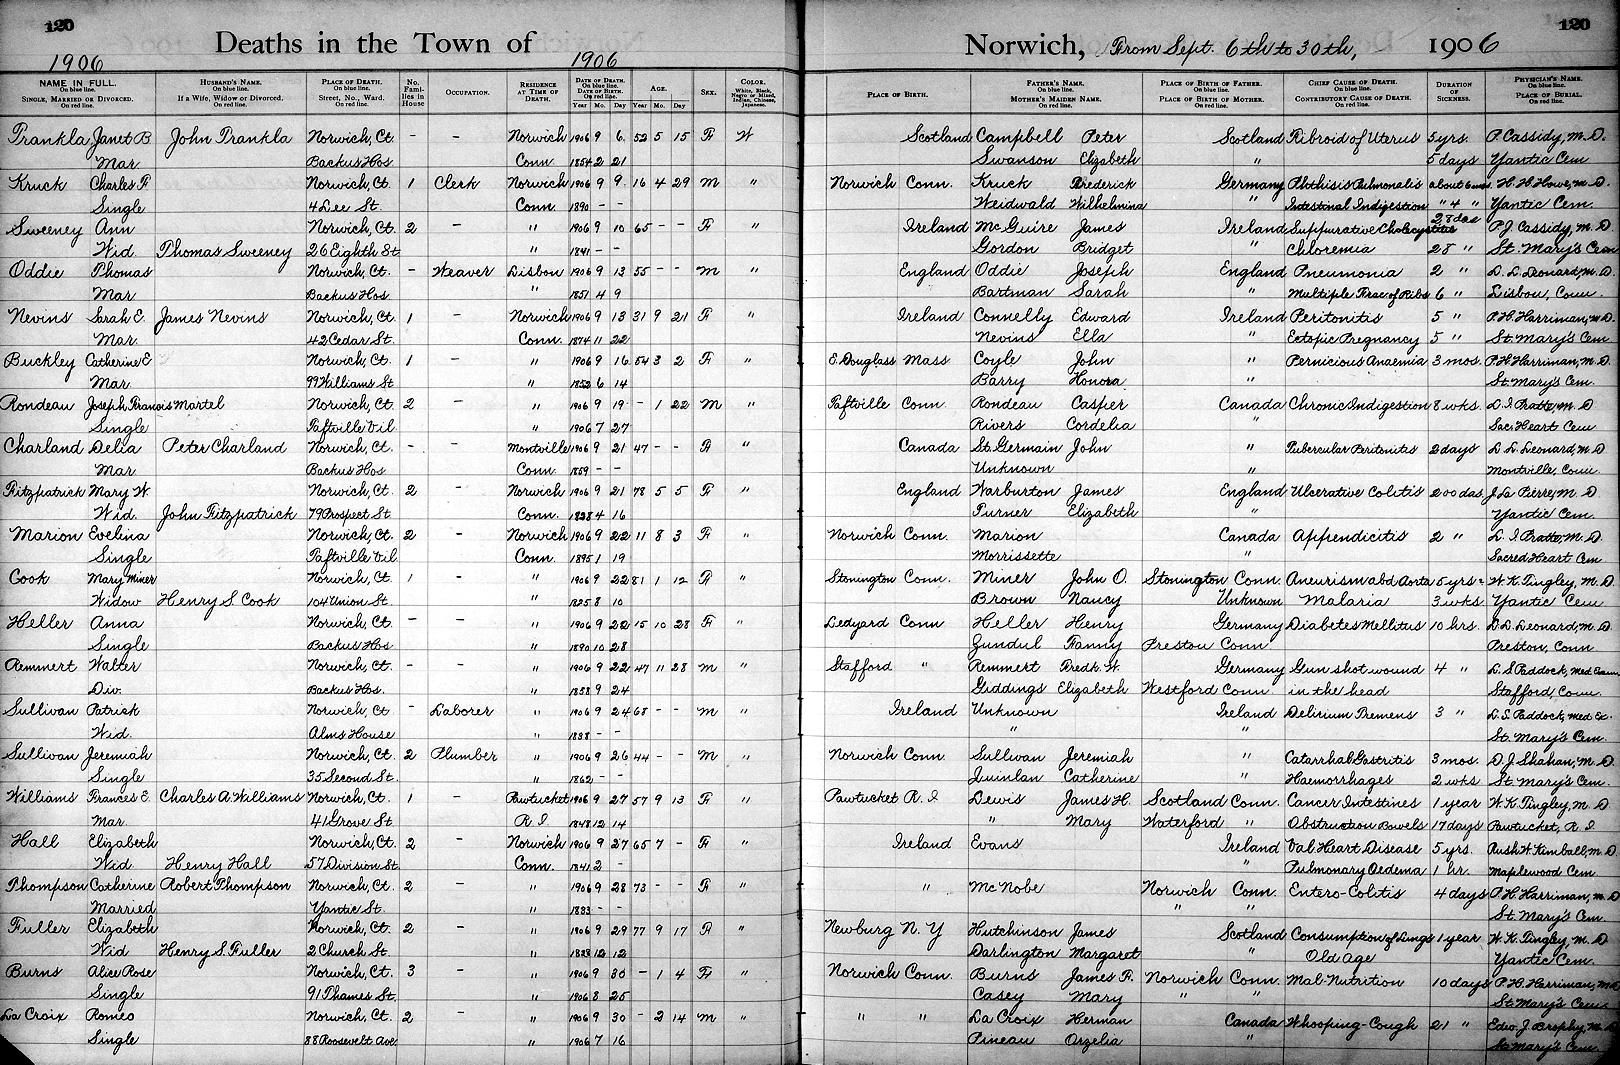 120 120
Deaths in the Town of Norwich, From Sept. 6th to 30th, 1906
1906 1906
NAME IN FULL. On blue line. SINGLE, MARRIED OR DIVORCED. On red line. HUSBAND'S NAME. On blue line. If a Wife, Widow or Divorced. On red line. PLACE OF DEATH. On blue line. Street, No., Ward. On red line. No. Families in House OCCUPATION. RESIDENCE AT TIME OF DEATH. DATE OF DEATH. On blue line. DATE OF BIRTH. On red line. Year Mo. Day AGE. Year Mo. Day SEX. COLOR. White, Black, Negro or Mixed, Indian, Chinese, Japanese. PLACE OF BIRTH. FATHER'S NAME. On blue line. MOTHER'S MAIDEN NAME. On red line. PLACE OF BIRTH OF FATHER. On blue line. PLACE OF BIRTH OF MOTHER. On red line. CHIEF CAUSE OF DEATH. On blue line. CONTRIBUTORY CAUSE OF DEATH. On red line. DURATION OF SICKNESS. PHYSICIAN'S NAME. On blue line. PLACE OF BURIAL. On red line.
Frankla Janet B. John Frankla Norwich, Ct. - - Norwich 1906 9 6. 52 5 15 F W Scotland Campbell Peter Scotland Fibroid of Uterus 5 yrs. P. Cassidy, M. D.
Mar. Backus Hos Conn. 1854 2 21 Swanson Elizabeth " 5 days Yantic Cem
Kruck Charles F. Norwich, Ct. 1 Clerk Norwich 1906 9 9. 16 4 29 M " Norwich Conn. Kruck Frederick Germany Phthisis Pulmonalis about 6 mos. H. H. Howe, M. D.
Single 4 Lee St. Conn. 1890 - - Weidwald Wilhelmina " Intestinal Indigestion " 4 " Yantic Cem.
Sweeney Ann Norwich, Ct. 2 " 1906 9 10 65 - - F " Ireland McGuire James Ireland Suppurative Cholecystitis 28 das P. J. Cassidy, M. D.
Wid Thomas Sweeney 26 Eighth St " 1841 - - Gordon Bridget " Chloremia 28 " St. Mary's Cem
Oddie Thomas Norwich, Ct. - Weaver Lisbon 1906 9 13 55 - - M " England Oddie Joseph England Pneumonia 2 " L. L. Leonard, M. D.
Mar Backus Hos " 1851 4 9 Bartman Sarah " Multiple Frac of Ribs 6 " Lisbon, Conn.
Nevins Sarah E. James Nevins Norwich, Ct. 1 - Norwich 1906 9 13 31 9 21 F " Ireland Connelly Edward Ireland Peritonitis 5 " P. H. Harriman, M. D
Mar. 42 Cedar St. Conn. 1874 11 22 Nevins Ella " Ectopic Pregnancy 5 " St. Mary's Cem
Buckley Catherine E Norwich, Ct. 1 - " 1906 9 16 54 3 2 F " E. Douglass Mass Coyle John " Pernicious Anaemia 3 mos. P. H. Harriman, M. D
Mar. 99 Williams St " 1852 6 14 Barry Honora " St. Mary's Cem.
Rondeau Joseph Francis Martel Norwich, Ct. 2 - " 1906 9 19 - 1 22 M " Taftville Conn. Rondeau Casper Canada Chronic Indigestion 8 wks. L. I. Pratte, M. D
Single Taftville Vil " 1906 7 27 Rivers Cordelia " Sac. Heart Cem
Charland Delia Peter Charland Norwich, Ct. - - Montville 1906 9 21 47 - - F " Canada St. Germain John " Tubercular Peritonitis 2 days L. L. Leonard, M. D
Mar. Backus Hos Conn. 1859 - - Unknown " Montville, Conn
Fitzpatrick Mary W. Norwich, Ct. 2 - Norwich 1906 9 21 78 5 5 F " England Warburton James England Ulcerative Colitis 200 das. J. La Pierre, M. D.
Wid. John Fitzpatrick 79 Prospect St. Conn. 1828 4 16 Turner Elizabeth " Yantic Cem.
Marion Evelina Norwich, Ct. 2 - Norwich 1906 9 22 11 8 3 F " Norwich Conn. Marion Canada Appendicitis 2 " L. I. Pratte, M. D.
Single Taftville Vil Conn. 1895 1 19 Morrissette " Sacred Heart Cem
Cook Mary Miner Norwich, Ct. 1 - " 1906 9 22 81 1 12 F " Stonington Conn. Miner John O. Stonington Conn. Aneurism abd Aorta 5 yrs W. K. Tingley, M. D.
Widow Henry S. Cook 104 Union St. " 1825 8 10 Brown Nancy Unknown Malaria 3 wks. Yantic Cem
Heller Anna Norwich, Ct. - - " 1906 9 22 15 10 28 F " Ledyard Conn Heller Henry Germany Diabetes Mellitus 10 hrs. L. L. Leonard, M. D.
Single Backus Hos " 1890 10 28 Zundul Fanny Preston Conn Preston, Conn
Remmert Walter Norwich, Ct. - - " 1906 9 22 47 11 28 M " Stafford " Remmert Fredk. W. Germany Gun shot wound 4 " L. S. Paddock, Med Exam.
Div. Backus Hos. " 1858 9 24 Giddings Elizabeth Westford Conn in the head Stafford, Conn.
Sullivan Patrick Norwich, Ct - Laborer " 1906 9 24 68 - - M " Ireland Unknown Ireland Delirium Tremens 3 " L. S. Paddock, Med Ex.
Wid. Alms House " 1838 - - " " St. Mary's Cem.
Sullivan Jeremiah Norwich, Ct. 2 Plumber " 1906 9 26 44 - - M " Norwich Conn. Sullivan Jeremiah " Catarrhal Gastritis 3 mos. D. J. Shahan, M. D.
Single 35 Second St. " 1862 - - Quinlan Catherine " Haemorrhages 2 wks St. Mary's Cem.
Williams Frances E. Charles A. Williams Norwich, Ct. 1 - Pawtucket 1906 9 27 57 9 13 F " Pawtucket R. I Lewis James H. Scotland Conn. Cancer Intestines 1 year W. K. Tingley, M. D
Mar. 41 Grove St R. I. 1848 12 14 " Mary Waterford " Obstruction Bowels 17 days Pawtucket, R. I.
Hall Elizabeth Norwich, Ct. 2 - Norwich 1906 9 27 65 7 - F " Ireland Evans Ireland Val Heart Disease 5 yrs. Rush W. Kimball, M. D
Wid Henry Hall 57 Division St. Conn. 1841 2 - " Pulmonary Oedema 1 hr. Maplewood Cem
Thompson Catherine Robert Thompson Norwich, Ct. 2 - " 1906 9 28 73 - - F " " McNobe Norwich Conn. Entero-Colitis 4 days P. H. Harriman, M. D
Married Yantic St. " 1833 - - " " St. Mary's Cem.
Fuller Elizabeth Norwich, Ct. 2 - " 1906 9 29 77 9 17 F " Newburg N. Y Hutchinson James Scotland Consumption of Lungs 1 year W. K. Tingley, M. D
Wid Henry S. Fuller 2 Church St. " 1828 12 12 Darlington Margaret " Old Age Yantic Cem.
Burns Alice Rose Norwich, Ct. 3 - " 1906 9 30 - 1 4 F " Norwich Conn. Burns James F. Norwich Conn. Mal-Nutrition 10 days P. H. Harriman, M. D
Single 91 Thames St. " 1906 8 25 Casey Mary " " St. Mary's Cem
La Croix Romeo Norwich, Ct. 2 - " 1906 9 30 - 2 14 M " " " La Croix Herman Canada Whooping-Cough 21 " Edw. J. Brophy, M. D
Single 88 Roosevelt Ave. " 1906 7 16 Pineau Orzelia " St. Mary's Cem.